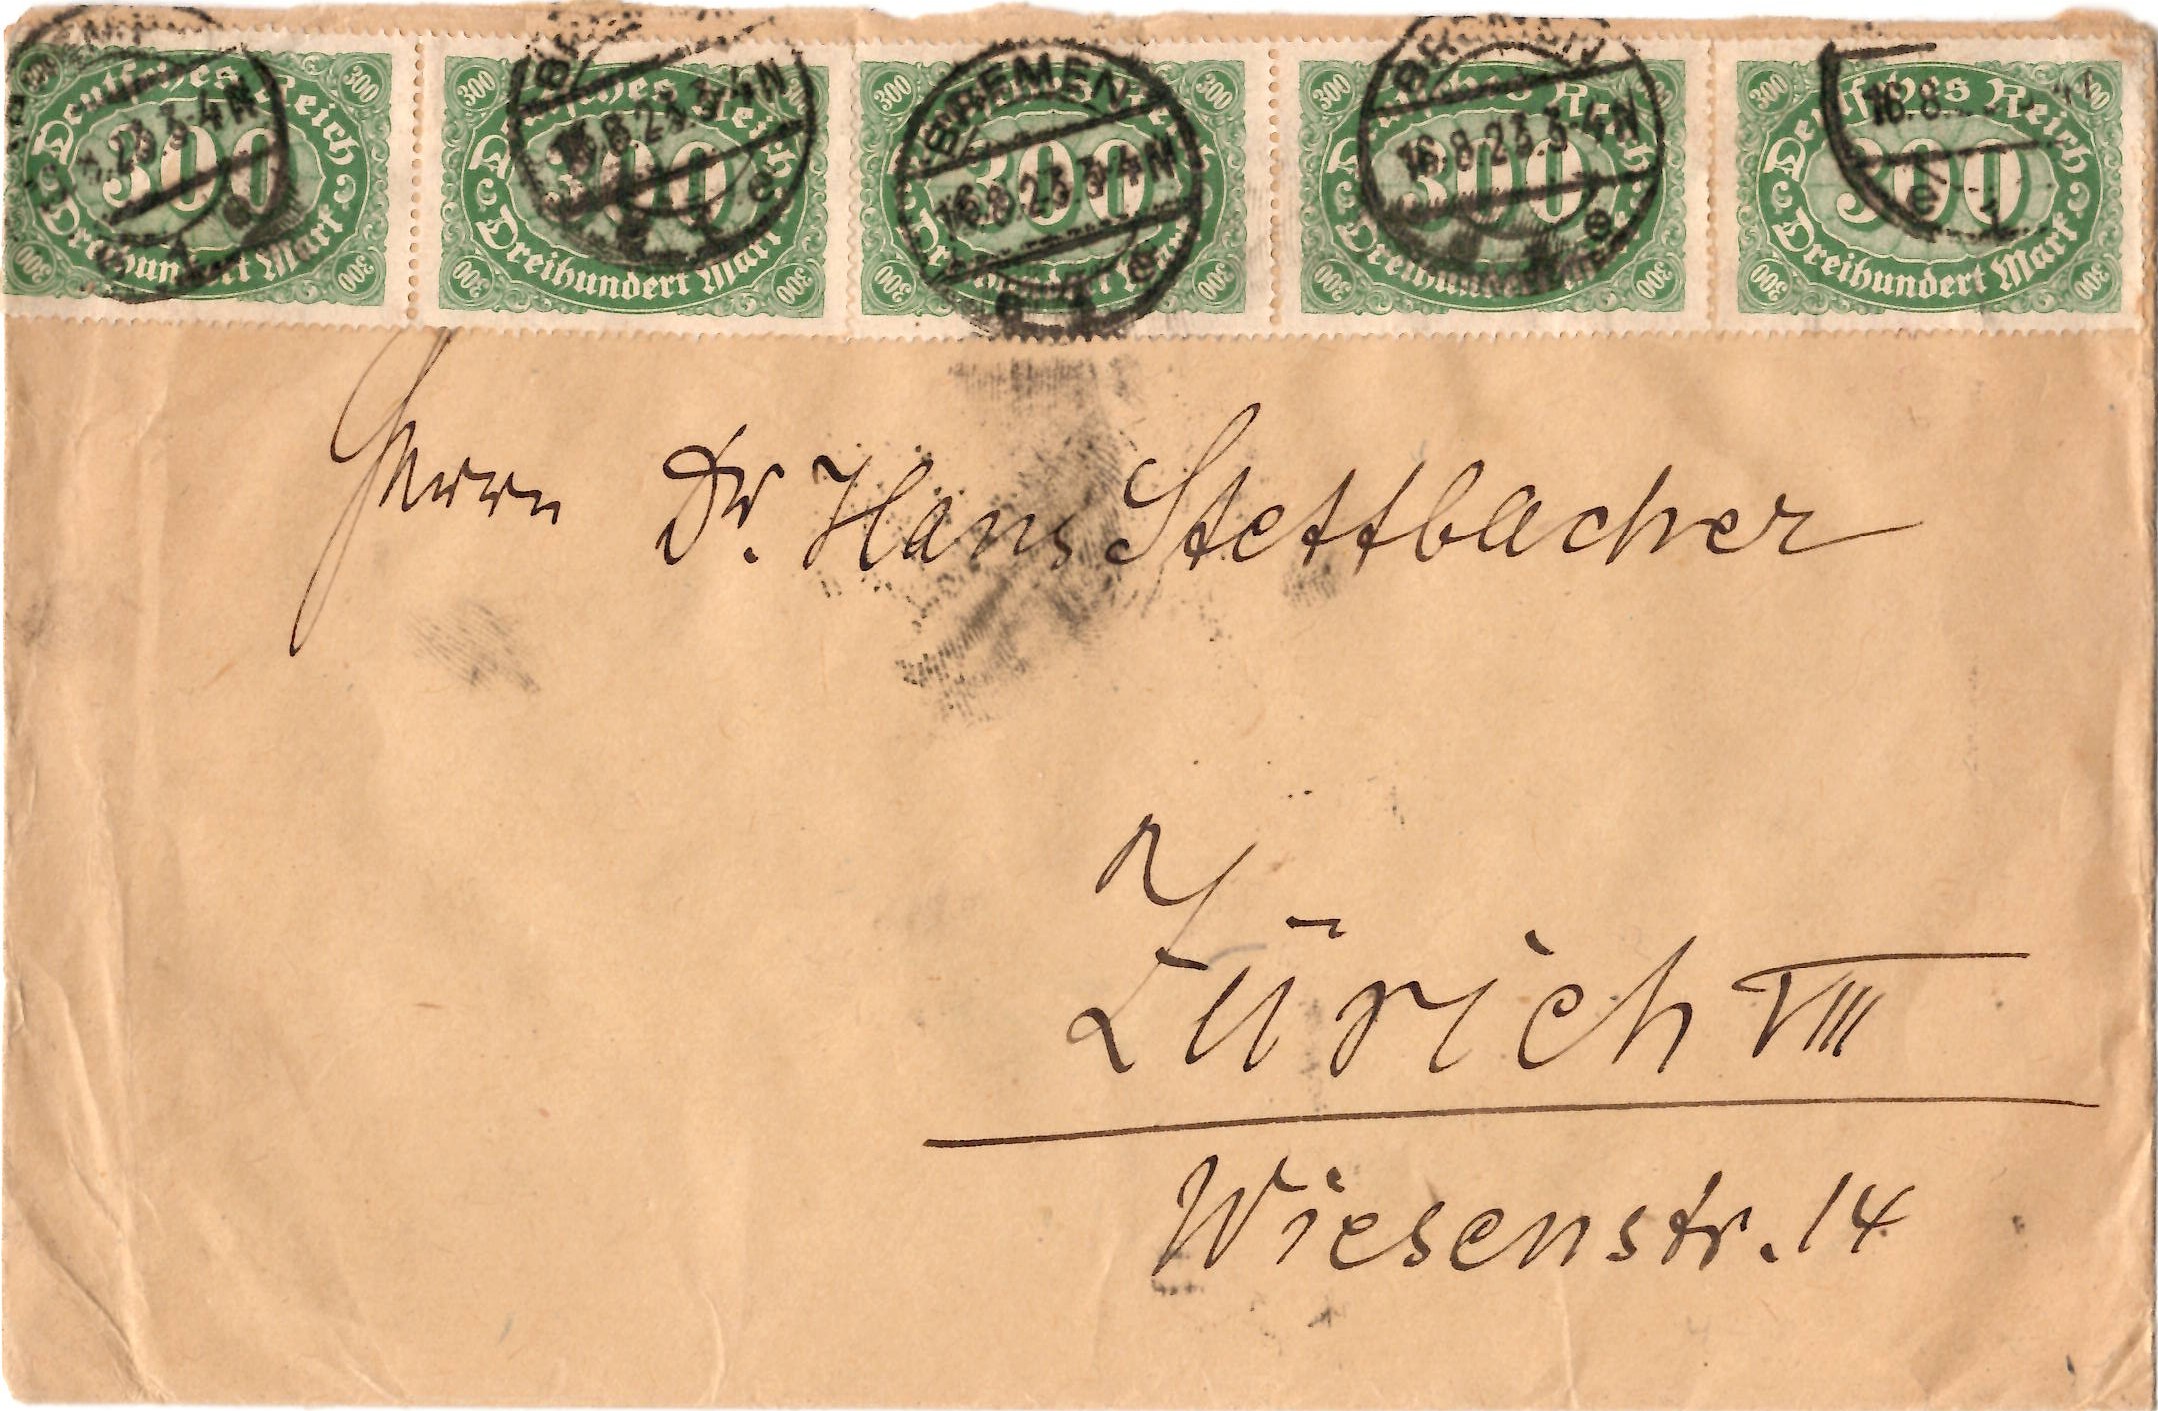 300 300 300 300 300 300 300
Deutsches Reich Deutsches Reich Reich Reich Deutsches Reich
300 300 300 300 300
Dreihundert Mark Dreihundert Mark Dreihundert Mark Dreihundert Mark
300 300 300 300 300 300 300 300 300
BREMEN BREMEN
23 3-4 N 16.8.23 3-4 N 16.8.23 3-4 N 16.8.23 3-4 N 16.8.
e e e e
Herrn Dr. Hans Stettbacher
Zürich VIII
Wiesenstr. 14